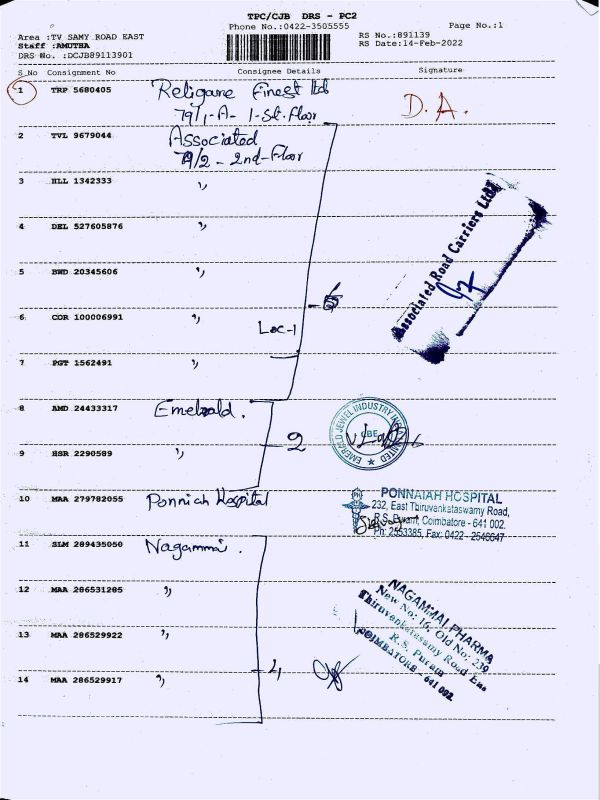 TPC/CJB DRS - PC2
Phone No.:0422-3505555
Page No.:1
Area :TV SAMY ROAD EAST
RS No.:891139
Staff :AMUTHA
RS Date:14-Feb-2022
DRS No. :DCJB89113901
S_No Consignment No Consignee Details Signature
1 TRP 5680405 Religare Finest ltd D.A.
79/1-A- 1-St.Floor
2 TVL 9679044 Associated
79/2 - 2nd-Floor
3 HLL 1342333 ,,
4 DEL 527605876 ,,
5 BWD 20345606 ,,
Associated Road Carriers Ltd.
6 COR 100006991 ,,
Loc-1
7 PGT 1562491 ,,
8 AMD 24433317 Emerald.
2
EMERALD JEWEL INDUSTRY INDIA LIMITED
CBE
9 HSR 2290589 ,,
10 MAA 279782055 Ponniah Hospital
PONNAIAH HOSPITAL
232, East Thiruvenkataswamy Road,
R.S. Puram, Coimbatore - 641 002.
Ph: 2553385, Fax: 0422 - 2546647
11 SLM 289435050 Nagammai.
12 MAA 286531285 ,,
13 MAA 286529922 ,,
4
14 MAA 286529917 ,,
NAGAMMAI PHARMA
New No: 16, Old No: 239
Thiruvenkatasamy Road East
R.S. Puram
COIMBATORE - 641 002